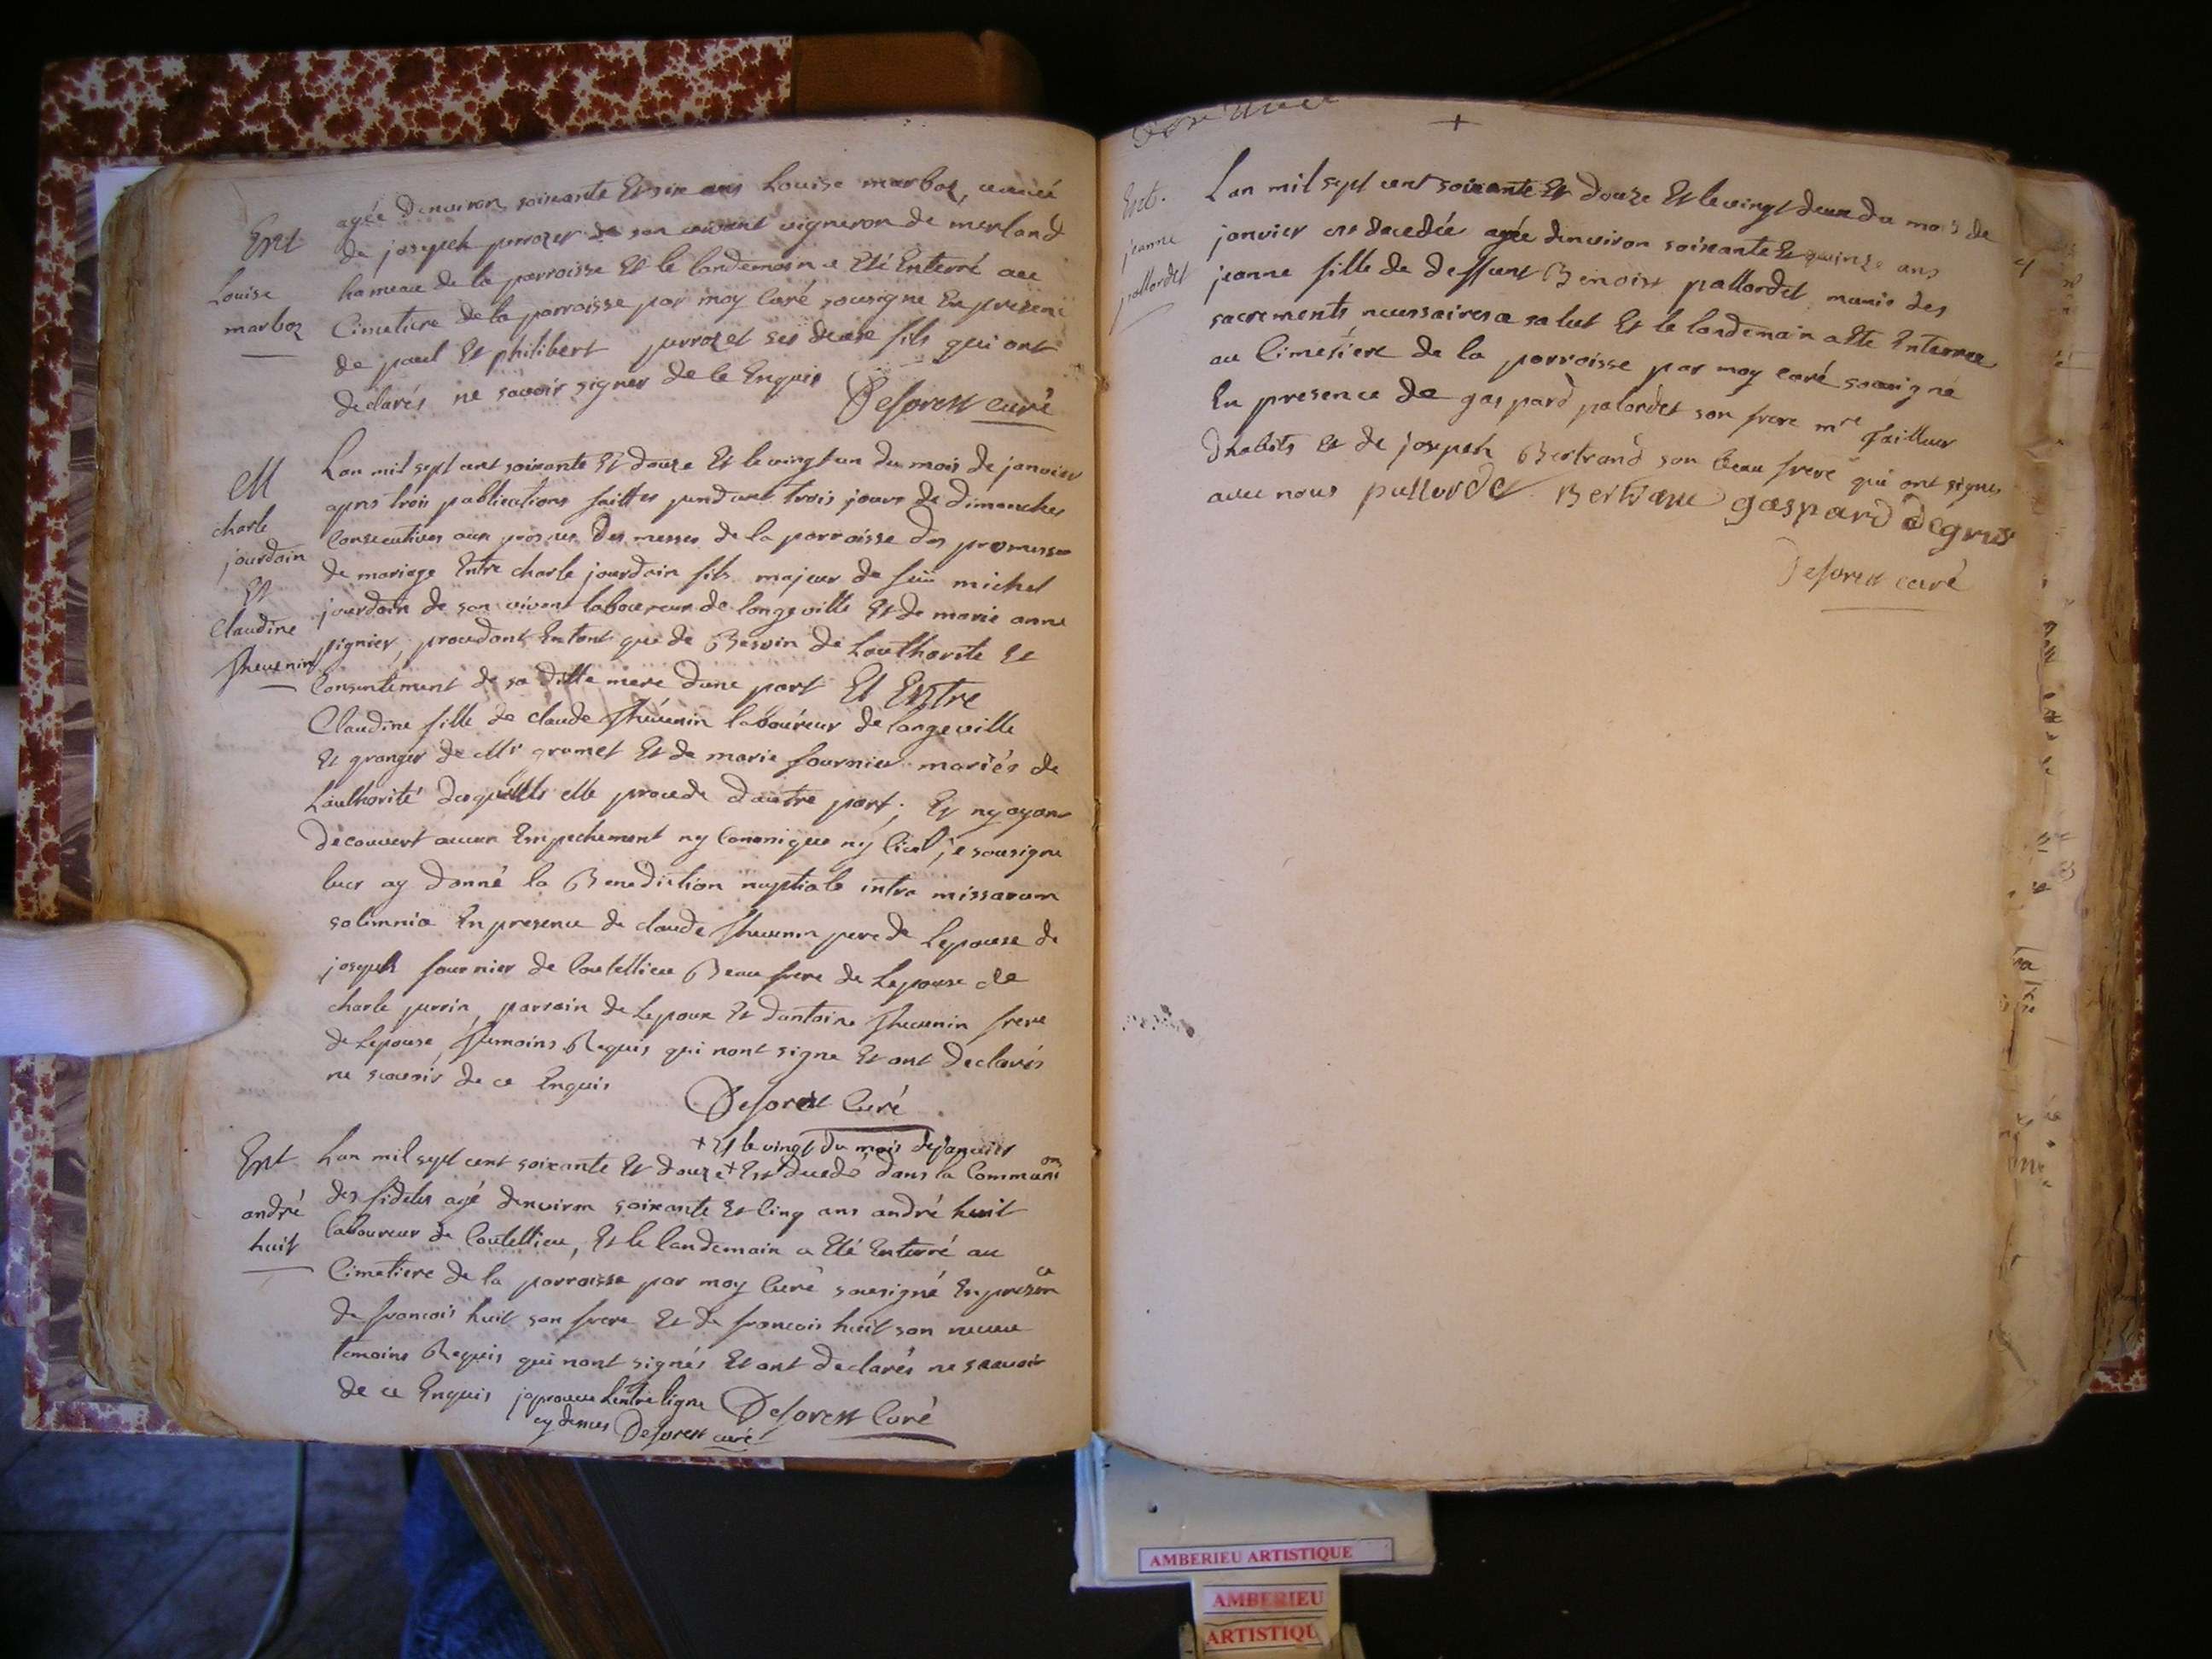 Ent
Louise
marboz
agée denviron soixante Et six ans Louise marboz, veuve
de joseph perrozet de son vivant vigneron de merland
hameau de la parroisse Et le landemain a Eté Enterré au
Cimetiere de la parroisse par moy Curé sousigné En presence
de paul Et philibert perrozet ses deux fils qui ont
declarés ne savoir signer de ce Enquis Deforest curé
M
charle
jourdain
Et
Claudine
thevenin
Lan mil sept cent soixante Et douze Et le vingt un du mois de janvier
apres trois publications faittes pendant trois jours de dimanches
Consecutives aux prosnes des messes de la parroisse des promesses
de mariage Entre charle jourdain fils majeur de feu michel
jourdain de son vivant laboureur de longeville Et de marie anne
pignier, procedant En tant que de Besoin de Lauthorité Et
Consentement de sa ditte mere dune part Et Entre
Claudine fille de claude thevenin laboureur de longeville
Et granger de Mr gramet Et de marie fournier mariés de
Lauthorité desquells elle procede dautre part; Et ny ayant
decouvert aucun Empechement ny Canonique ny Civil je sousigne
leur ay donné la Benediction nuptiale intra missarum
solimnia En presence de claude thevenin pere de Lepouse de
joseph fournier de Coutellieu Beau frere de Lepouse de
charle perrin, parrain de Lepoux Et dantoine thevenin frere
de Lepouse, temoins Requis qui nont signe Et ont declarés
ne scavoir de ce Enquis
Deforest Curé
+ Et le vingt du mois de janvier
Ent
andré
huit
Lan mil sept cent soixante Et douze + Est decedé dans la Communion
des fideles agé denviron soixante Et Cinq ans andré huit
laboureur de Coutellieu, Et le landemain a Eté Enterré au
Cimetiere de la parroisse par moy Curé sousigné En presence
de francois huit son frere Et de francois huit son neveu
temoins Requis qui nont signés Et ont declarés ne scavoir
de ce Enquis japrouve Lentre ligne Deforest Curé
cy dessus Deforest curé
+
Ent.
jeanne
pallordet
Lan mil sept cent soixante Et douze Et le vingt deux du mois de
janvier est decedée agée denviron soixante Et quinze ans
jeanne fille de deffunt Benoist pallordet munie des
sacrements necessaires a salut Et le landemain a Eté Enterrée
au Cimetiére de la parroisse par moy curé sousigné
En presence de gaspard palordet son frere mre tailleur
dhabits et de joseph Bertrand son beau frere qui ont signes
avec nous pallordet Bertrand gaspard degrus
Deforest curé
AMBERIEU ARTISTIQUE
AMBERIEU
ARTISTIQU